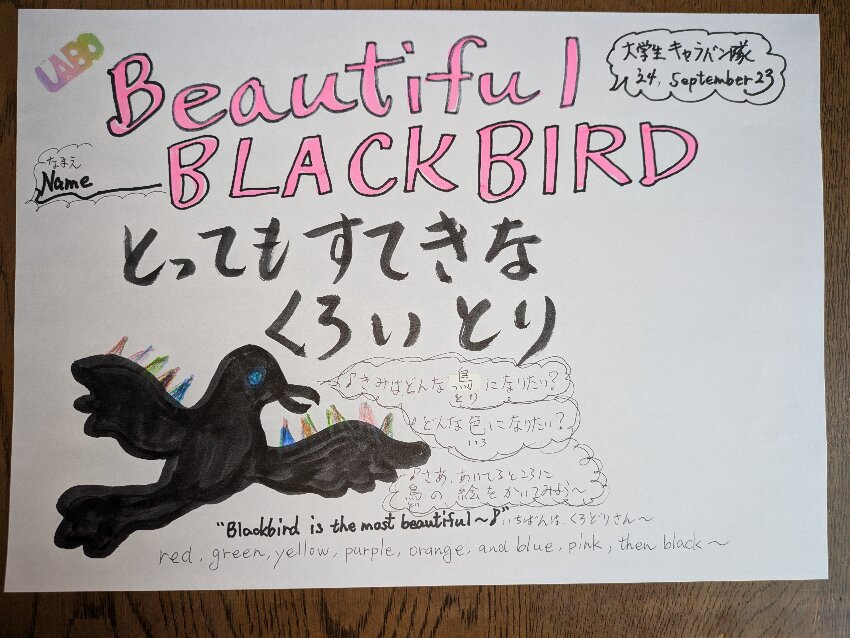 LABO
Beautiful
BLACKBIRD
大学生キャラバン隊
'24. September 23
なまえ
Name
とってもすてきな
くろいとり
♪きみはどんな鳥になりたい?
とり
♪どんな色になりたい?
いろ
♪さあ、あいてるところに
鳥の絵をかいてみよう〜
"Blackbird is the most beautiful〜♪" いちばんは、くろどりさん〜
red, green, yellow, purple, orange, and blue, pink, then black〜